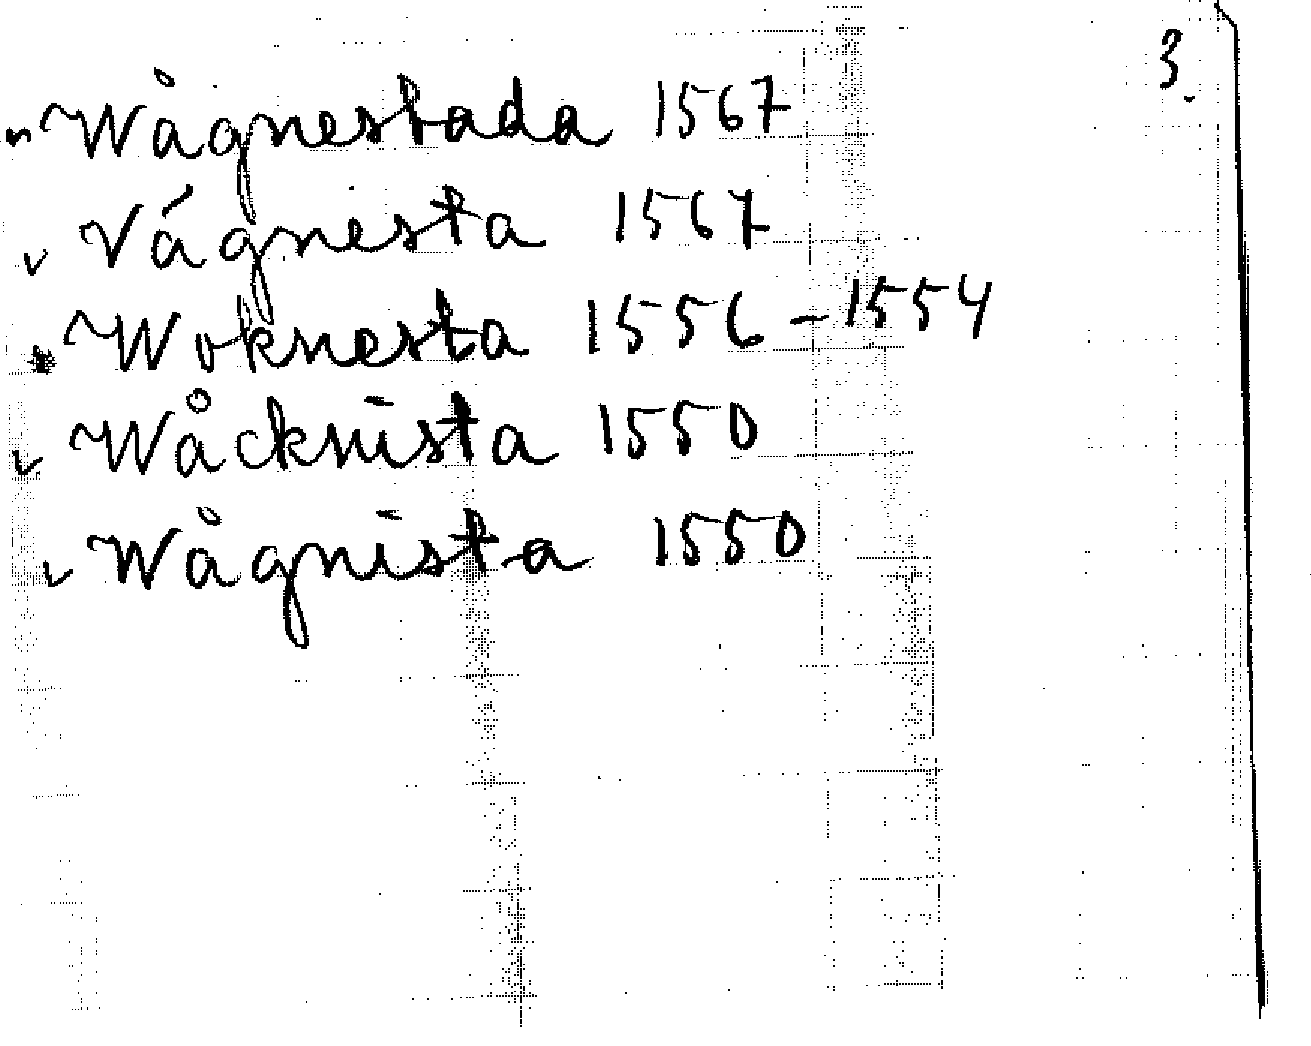 3.
Wågnestada 1567
Vågnesta 1567
Woknesta 1556 - 1554
Wåcknista 1550
Wågnista 1550